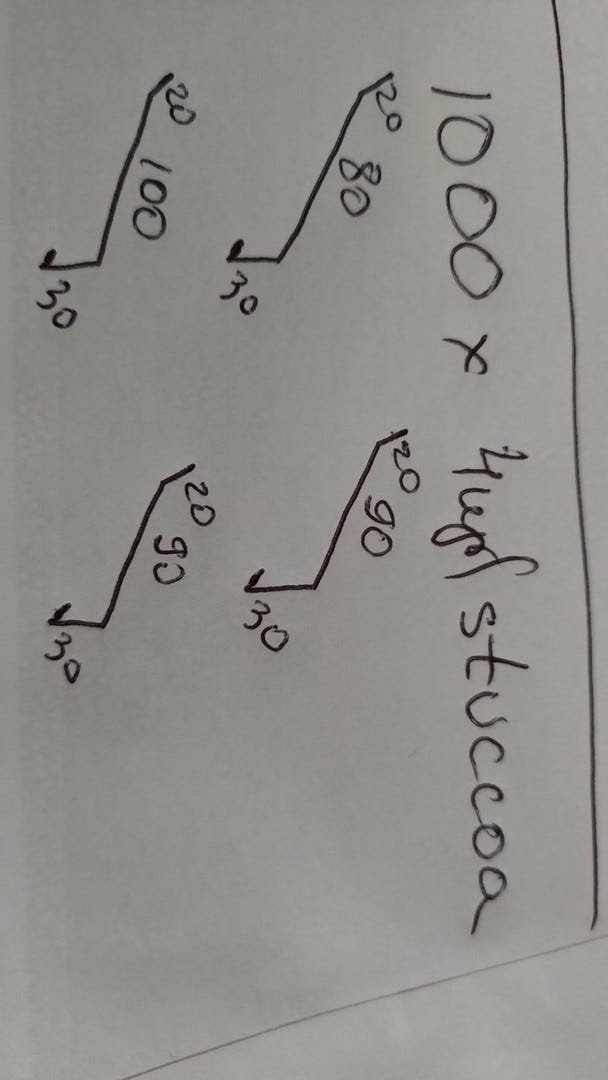 1000 x stuccoa
20 80 30 20 90 30
20 100 30 20 90 30